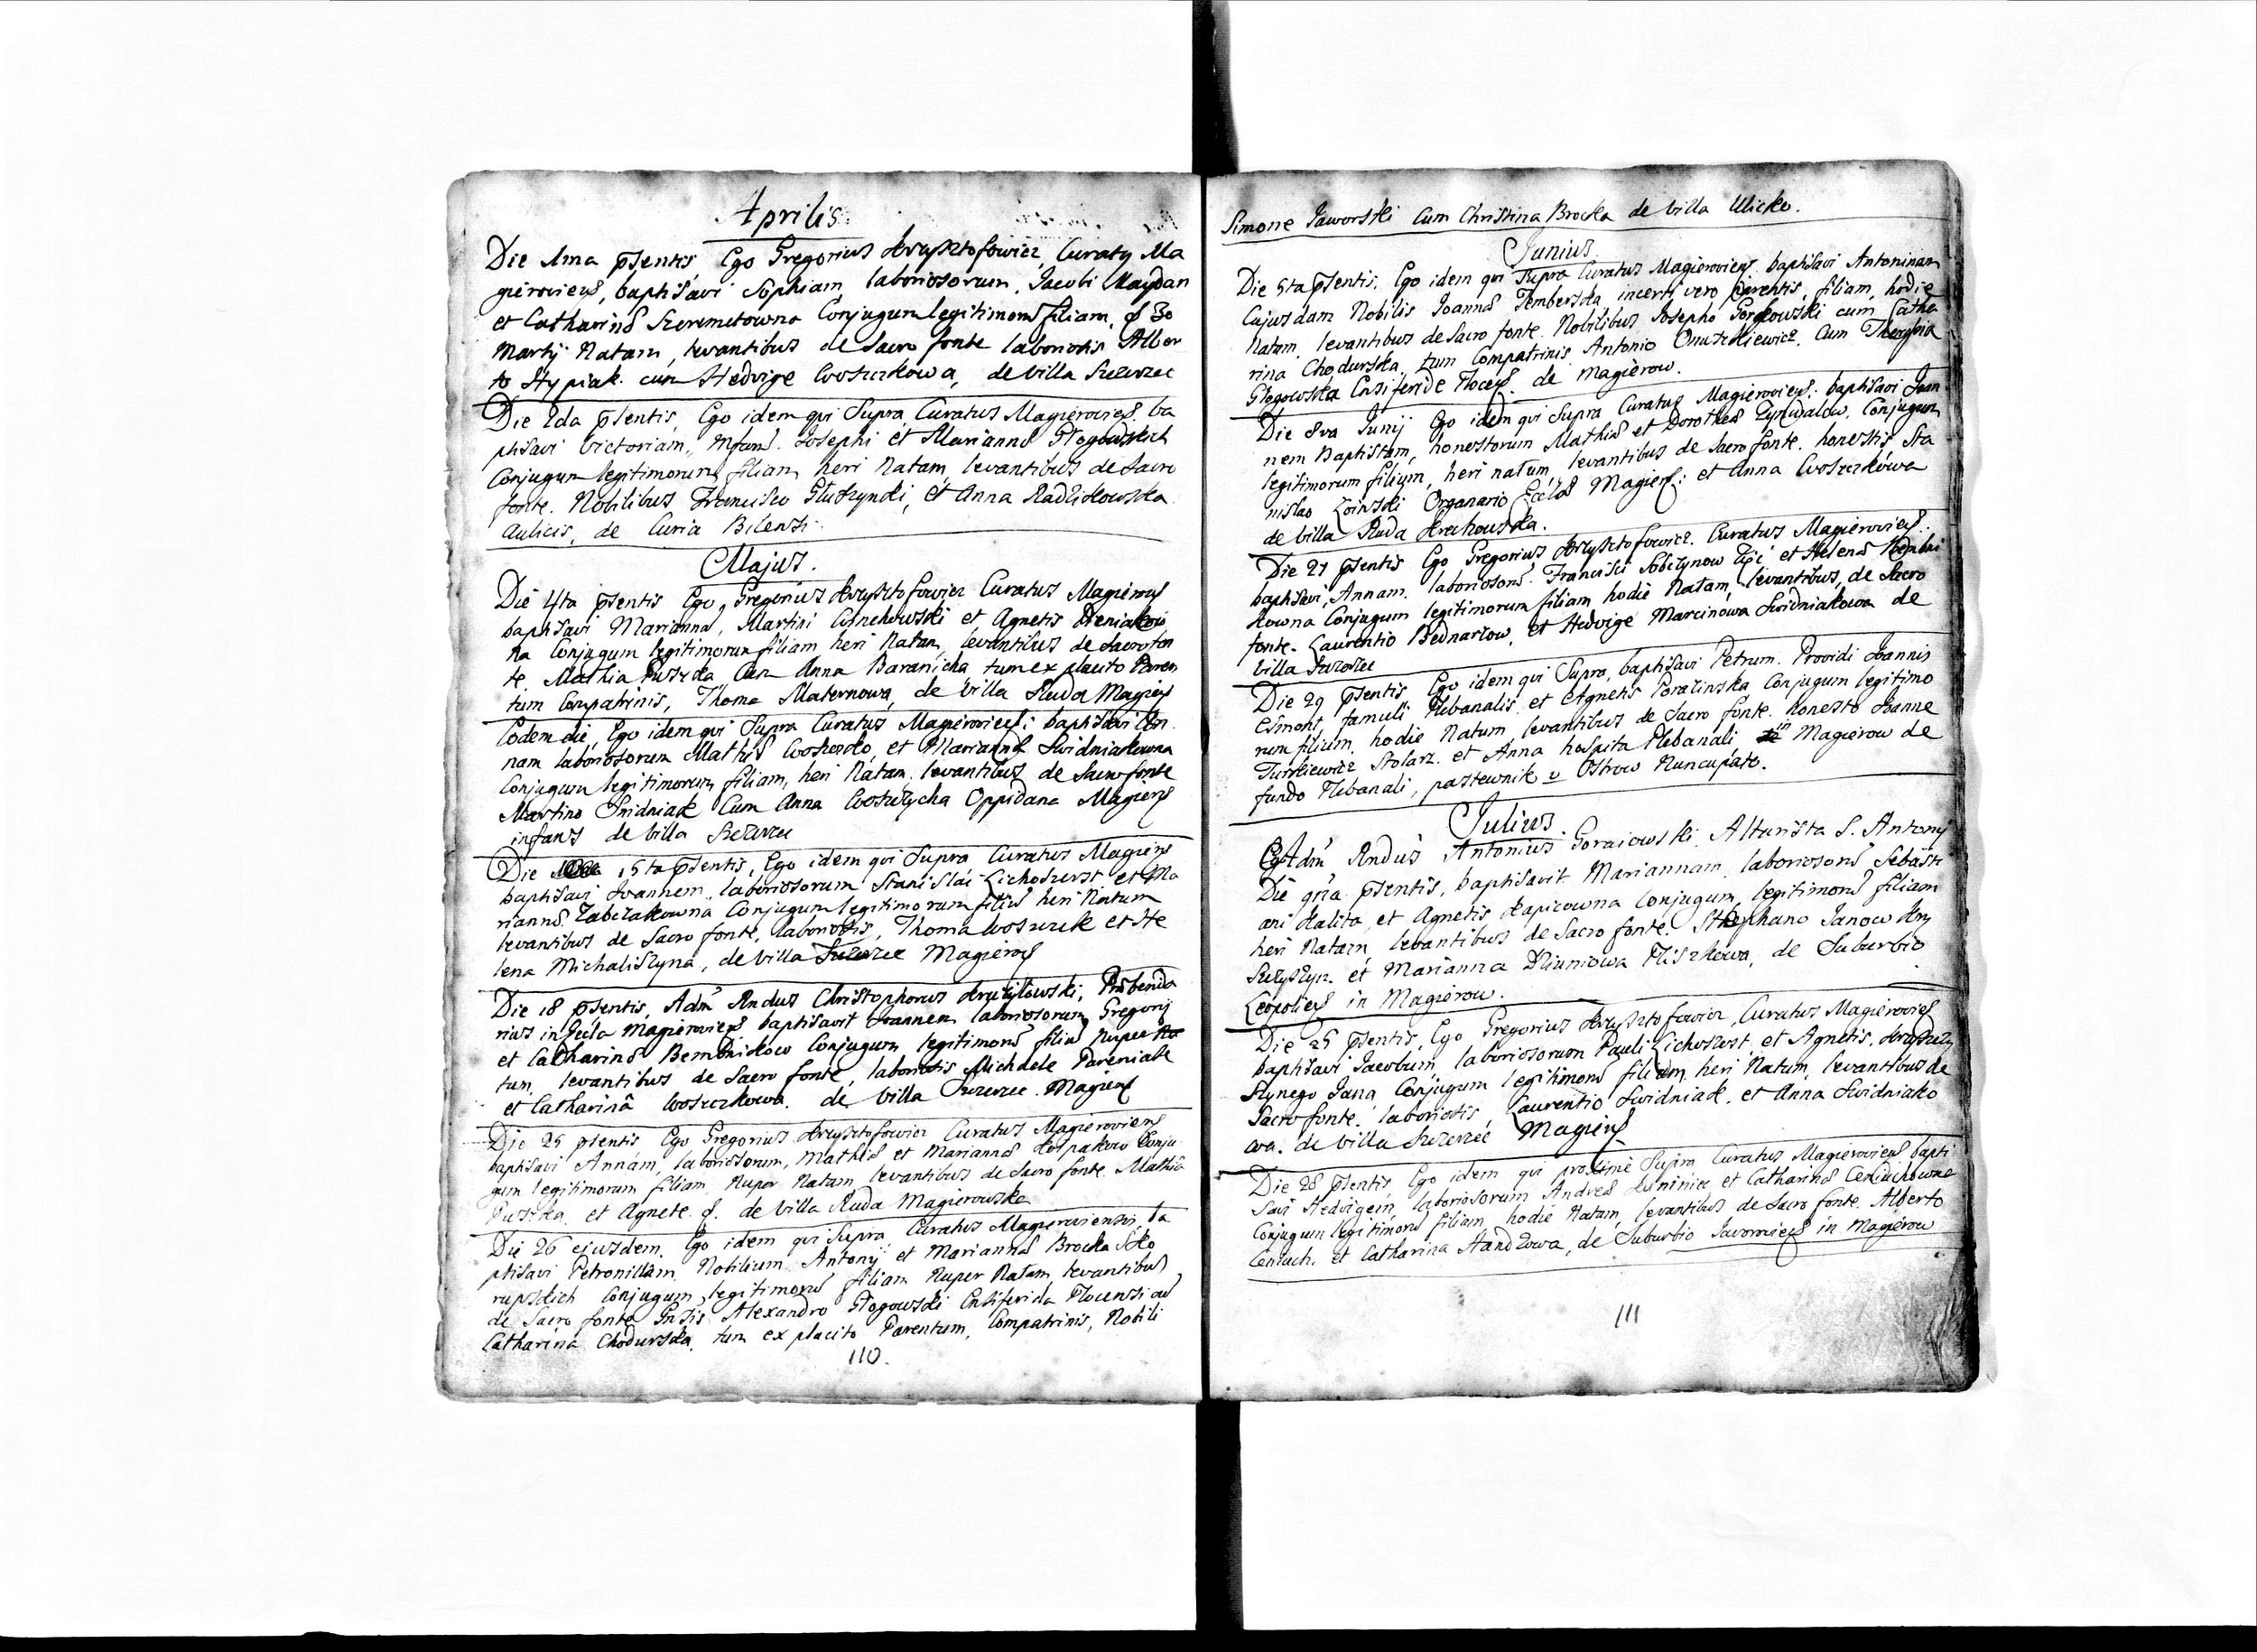 Aprilis
Die 1ma psentis, Ego Gregorius Krzysztofowicz, Curatus Ma
gierowiens, baptisavi Sophiam, laboriosorum, Jacobi Maydan
et Catharinæ Szeremetowna Conjugum legitimorum filiam, 30
Martij Natam, levantibus de Sacro fonte laboriosis Alber
to Hypiak cum Hedvige Woszczkowa, de villa Szczerzec
Die 2da psentis, Ego idem qui Supra, Curatus Magierowiens ba
ptisavi Victoriam, Josephi et Mariannæ Głogowskich
Conjugum legitimorum filiam heri Natam, levantibus de Sacro
fonte. Nobilibus Francisco Głuszynski, et Anna Radzikowska
Aulicis, de Curia Bilensi.
Majus.
Die 4ta psentis Ego Gregorius Krzysztofowicz Curatus Magierows
baptisavi Marianna, Martini et Agnetis
na Conjugum legitimorum filiam heri Natam, levantibus de Sacro fon
te Mathia Puszka Cum Anna Baranicha tum ex placito Paren
tum Compatrinis, Thoma Maternowa, de villa Ruda Magiers
Eodem die, Ego idem qui Supra Curatus Magierowiens: baptisavi An
nam laboriosorum Mathiæ Woszczko, et Mariannæ Swidniakowna
Conjugum legitimorum filiam, heri Natam, levantibus de Sacro fonte
Martino Swidniak Cum Anna Oppidana Magiers
infans de villa Szczerzec
Die 15ta psentis, Ego idem qui Supra Curatus Magiers
baptisavi Joannem, laboriosorum Stanislai Lichoszerst et Ma
riannæ Zabczakowna Conjugum legitimorum filiū heri Natum
levantibus de Sacro fonte, laboriosis, Thoma Woszczek et He
lena Michaliszyna, de villa Szczerzec Magierows
Die 18 psentis, Adm Rndus Christophorus Kruszylowski, Præbenda
rius in Eccla Magierowiens baptisavit Joannem laboriosorum Gregorij
et Catharinæ Bembnikow Conjugum legitimorū filiū Nuper Na
tum, levantibus de Sacro fonte, laboriosis Michaele Pareniak
et Catharinâ Woszczkowa. de villa Szczerzec Magiers
Die 25 psentis Ego Gregorius Krzysztofowicz Curatus Magierowiens
baptisavi Annam, laboriosorum, Mathiæ et Mariannæ Kolpakow Conju
gum legitimorum filiam, Nuper Natam levantibus de Sacro fonte Mathiâ
Puszka et Agnete de villa Ruda Magierowska
Die 26 ejusdem. Ego idem qui Supra Curatus Magierowiensis, ba
ptisavi Petronillam Nobilium Antonij et Mariannæ Brocka Sko
rupskich Conjugum legitimorū filiam Nuper Natam levantibus
de Sacro fonte Alexandro Głogowski Ensiferida
Catharina Chodurska, tum ex placito Parentum, Compatrinis, Nobili
110.
Simone Jaworski Cum Christina Brocka de villa Ulicko.
Junius
Die 5ta psentis. Ego idem qui Supra Curatus Magierowiens. baptisavi Antoninam
Cujusdam Nobilis Joannæ Temberska incerti vero Parentis, filiam, hodie
Natam, levantibus de Sacro fonte. Nobilibus Josepho Gorskowski cum Catha
rina Chodurska, tum Compatrinis Antonio Onuszkiewicz, Cum Theresia
Głogowska de Magierow.
Die 8va Junij Ego idem qui Supra Curatus Magierowiens: baptisavi Joan
nem Baptistam, honestorum Mathiæ et Dorotheæ Conjugum
legitimorum filium, heri natum, levantibus de Sacro fonte. honestis Sta
nislao Łoinski Organario Ecclæ Magiers: et Anna Woszczkówa
de villa Ruda Krechowska.
Die 21 psentis Ego Gregorius Krzysztofowicz. Curatus Magierowiens.
baptisavi, Annam, laboriosorū Francisci et Helenæ
kowna Conjugum legitimorum filiam hodie Natam, levantibus, de Sacro
fonte. Laurentio Bednarzow, et Hedvige Marcinowa Swidniakowa de
villa Szczerzec
Die 29 psentis Ego idem qui Supra, baptisavi Petrum. Providi Joannis
Esmont, famuli Plebanalis, et Agnetis Porazinska Conjugum legitimo
rum filium, hodie Natum, levantibus de Sacro fonte. honesto Joanne
Turkiewicz Stolarz. et Anna hospita Plebanali in Magierow de
fundo Plebanali, pastewnik v Ostrow Nuncupato.
Julius
Adm Rndus Antonius Goraiowski, Altarista S. Antonij
Die psentis, baptisavit Mariannam, laboriosorū Sebasti
ani Kalita, et Agnetis Kapicowna Conjugum, legitimorū filiam
heri Natam, levantibus de Sacro fonte. Stephano Janow Krzy
szczyszyn. et Marianna Pliszkowa, de Suburbio
Leopoliens in Magierow.
Die 25 psentis, Ego Gregorius Krzysztofowicz, Curatus Magierowiens
baptisavi Jacobum, laboriosorum Pauli Lichoszerst. et Agnetis,
Conjugum legitimorū filium heri Natum, levantibus de
Sacro fonte. laboriosis, Laurentio Swidniak. et Anna Swidniako
wa. de villa Szczerzec Magiers
Die 28 psentis Ego idem qui proxime Supra Curatus Magierowiens bapti
savi Hedvigem, laboriosorum Andreæ et Catharinæ Ceniuchowna
Conjugum legitimorū filiam, hodie Natam, levantibus de Sacro fonte. Alberto
Ceniuch. et Catharina Handzowa, de Suburbio Javoroviens in Magierow
111